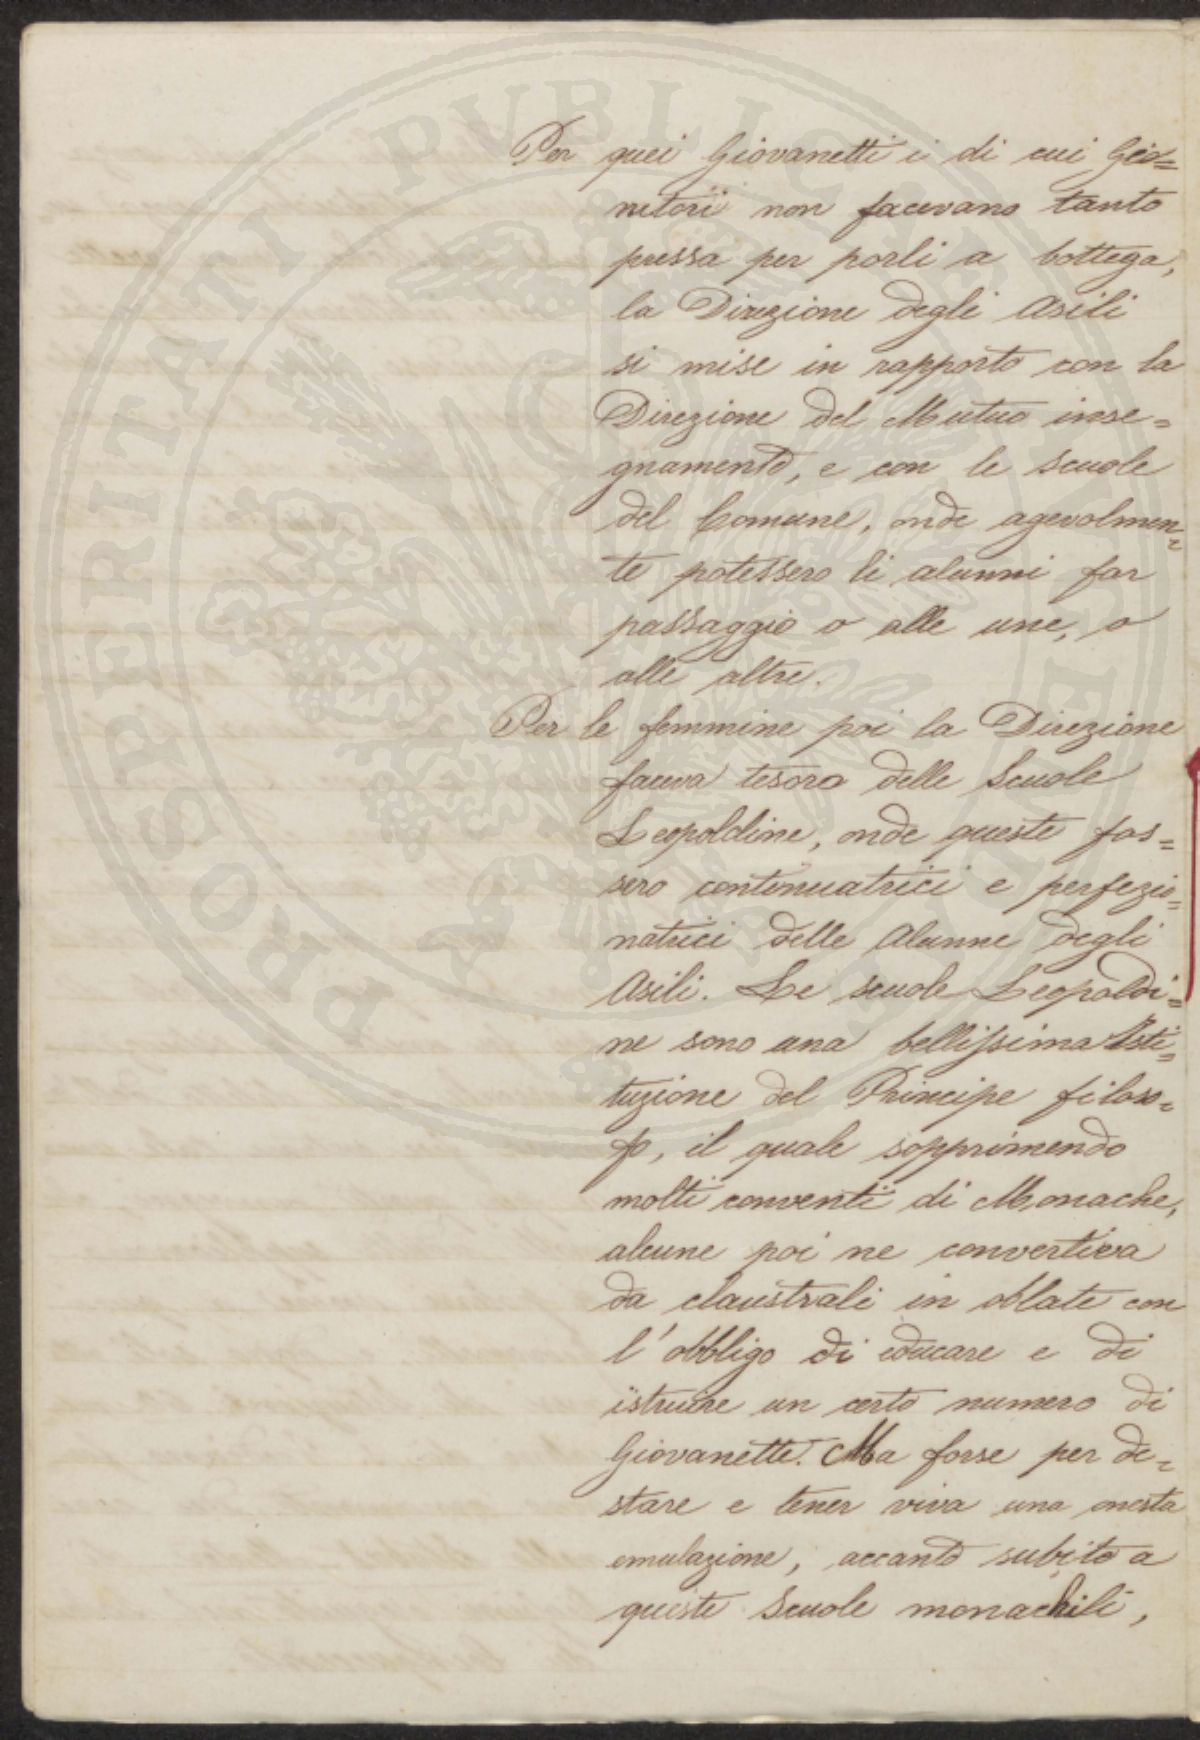 Per quei Giovanetti i di cui Ge=
nitori non facevano tanto
pressa per porli a bottega,
la Direzione degli Asili
si mise in rapporto con la
Direzione del Mutuo inse=
gnamento, e con le scuole
del Comune, onde agevolmen=
te potessero li alunni far
passaggio o alle une, o
alle altre.
Per le femmine poi la Direzione
faceva tesoro delle Scuole
Leopoldine, onde queste fos=
sero continuatrici e perfezio=
natrici delle Alunne degli
Asili. Le scuole Leopoldi=
ne sono una bellissima Isti=
tuzione del Principe filoso=
fo, il quale sopprimendo
molti conventi di Monache,
alcune poi ne convertiva
da claustrali in oblate con
l'obbligo di educare e di
istruire un certo numero di
Giovanette. Ma forse per de=
stare e tener viva una onesta
emulazione, accanto subito a
queste Scuole monachili,
PROSPERITATI PUBLICAE AUGENDAE